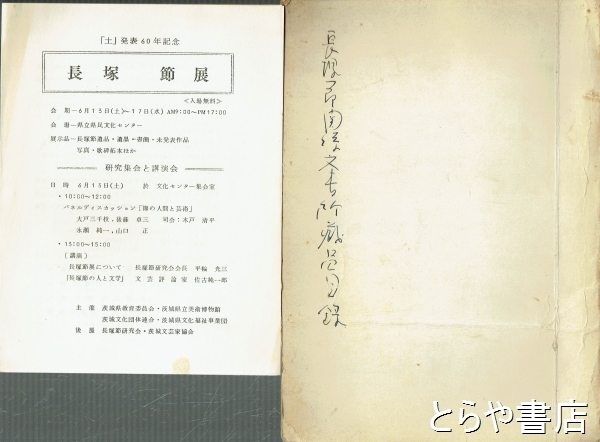 「土」発表60年記念
長塚 節展
<入場無料>
会 期－6月13日(土)～17日(水) AM9:00～PM17:00
会 場－県立県民文化センター
展示品－長塚節遺品・遺墨・書簡・未発表作品
写真・歌碑拓本ほか
研究集会と講演会
日 時 6月13日(土) 於 文化センター集会室
・10:00～12:00
パネルディスカッション「節の人間と芸術」
大戸三千枝，後藤 直三 司会：水戸 浩平
永瀬 純一，山口 正
・13:00～15:00
(講演)
長塚節展について－長塚節研究会会長 平輪 光三
「長塚節の人と文学」 文芸評論家 佐古純一郎
主 催 茨城県教育委員会・茨城県立美術博物館
茨城文化団体連合・茨城県文化福祉事業団
後 援 長塚節研究会・茨城文芸家協会
長塚節関係文書所蔵品目録
とらや書店